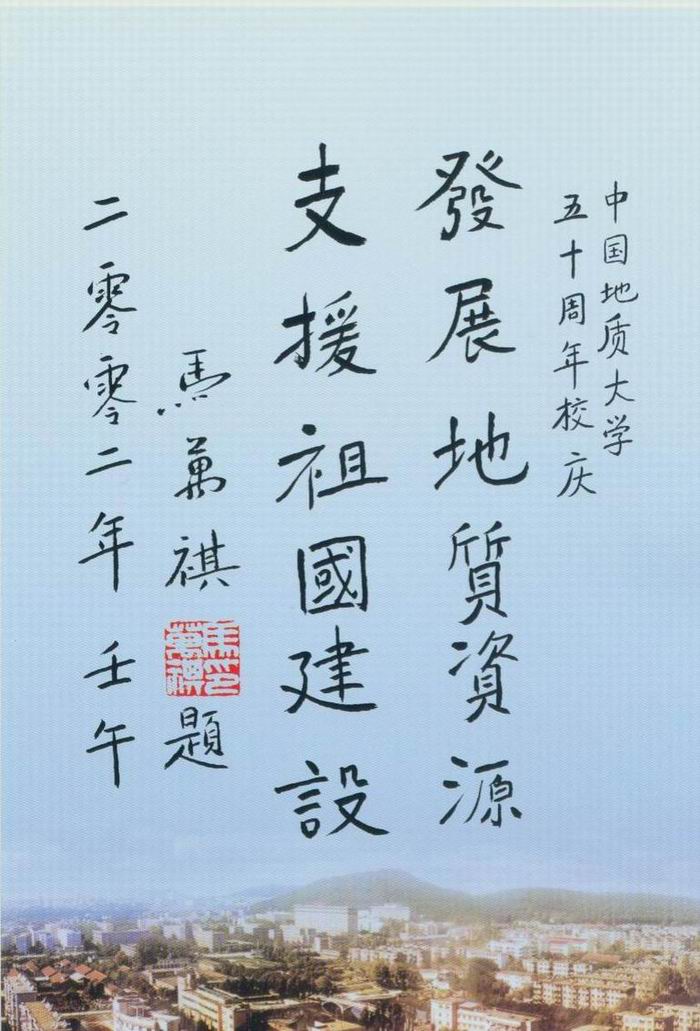 中国地质大学
五十周年校庆
發展地質資源
支援祖國建設
馬萬祺題
馬萬祺印
二零零二年 壬午